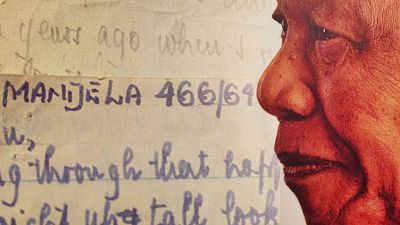 years ago when
MANDELA 466/64
u,
g through that happ
tall look